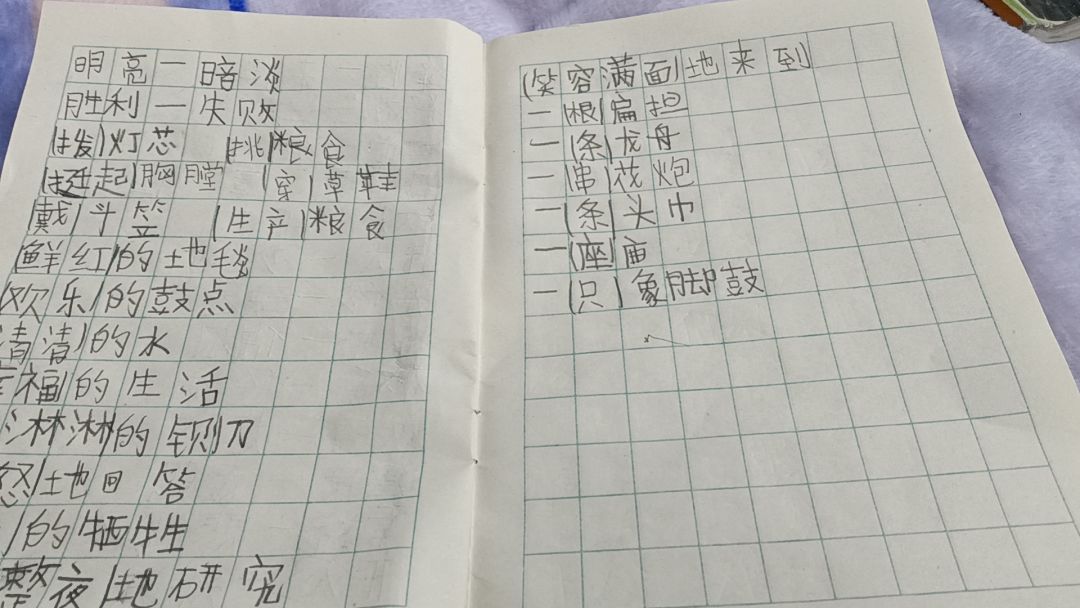 明亮一暗淡
胜利一失败
(拨)灯芯 (挑)粮食
(挺起)胸膛 (穿)草鞋
(戴)斗笠 (生产)粮食
(鲜红)的土地毯
欢乐)的鼓点
清清)的水
幸福)的生活
淋淋的铡刀
怒)地回答
)的牺牲
整夜)地研究
(笑容满面)地来到
一(根)扁担
一(条)龙舟
一(串)花炮
一(条)头巾
一(座)庙
一(只)象脚鼓